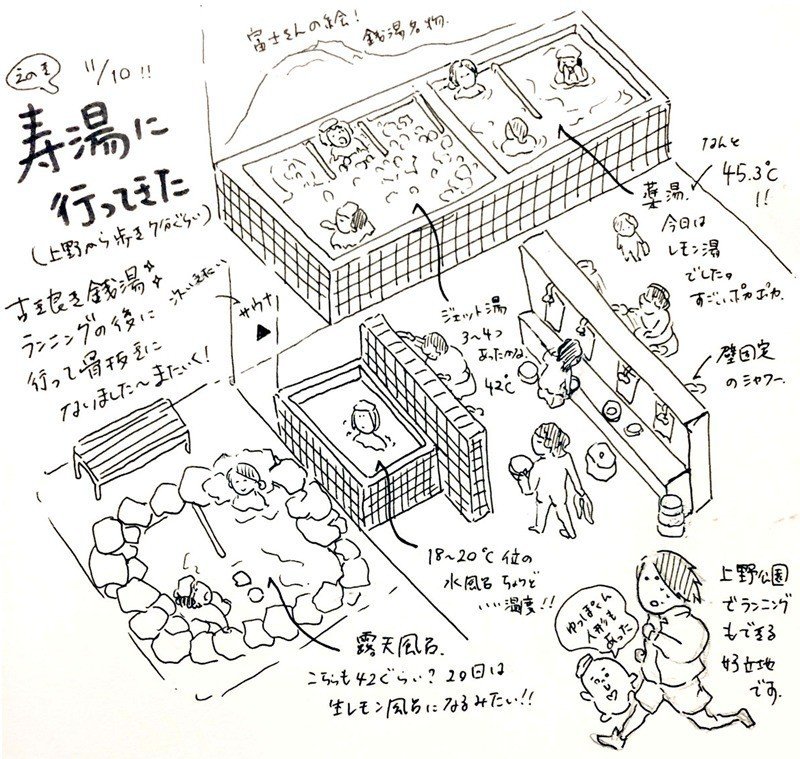 えのき
11/10!!
寿湯に
行ってきた
(上野から歩き7分ぐらい)
古き良き銭湯
ランニングの後に
行って骨抜きに
なりました〜またいく!
富士さんの絵!
銭湯名物.
薬湯.
なんと
45.3℃
!!
今日は
レモン湯
でした。
すごいポカポカ.
ジェット湯
3〜4つ
あったかな.
42℃
壁固定
のシャワー.
サウナ
18〜20℃位の
水風呂 ちょうど
いい温度!!
露天風呂.
こちらも42ぐらい?20日は
生レモン風呂になるみたい!!
ゆっぽくん
人形も
あった
上野公園
でランニング
もできる
好立地
です.